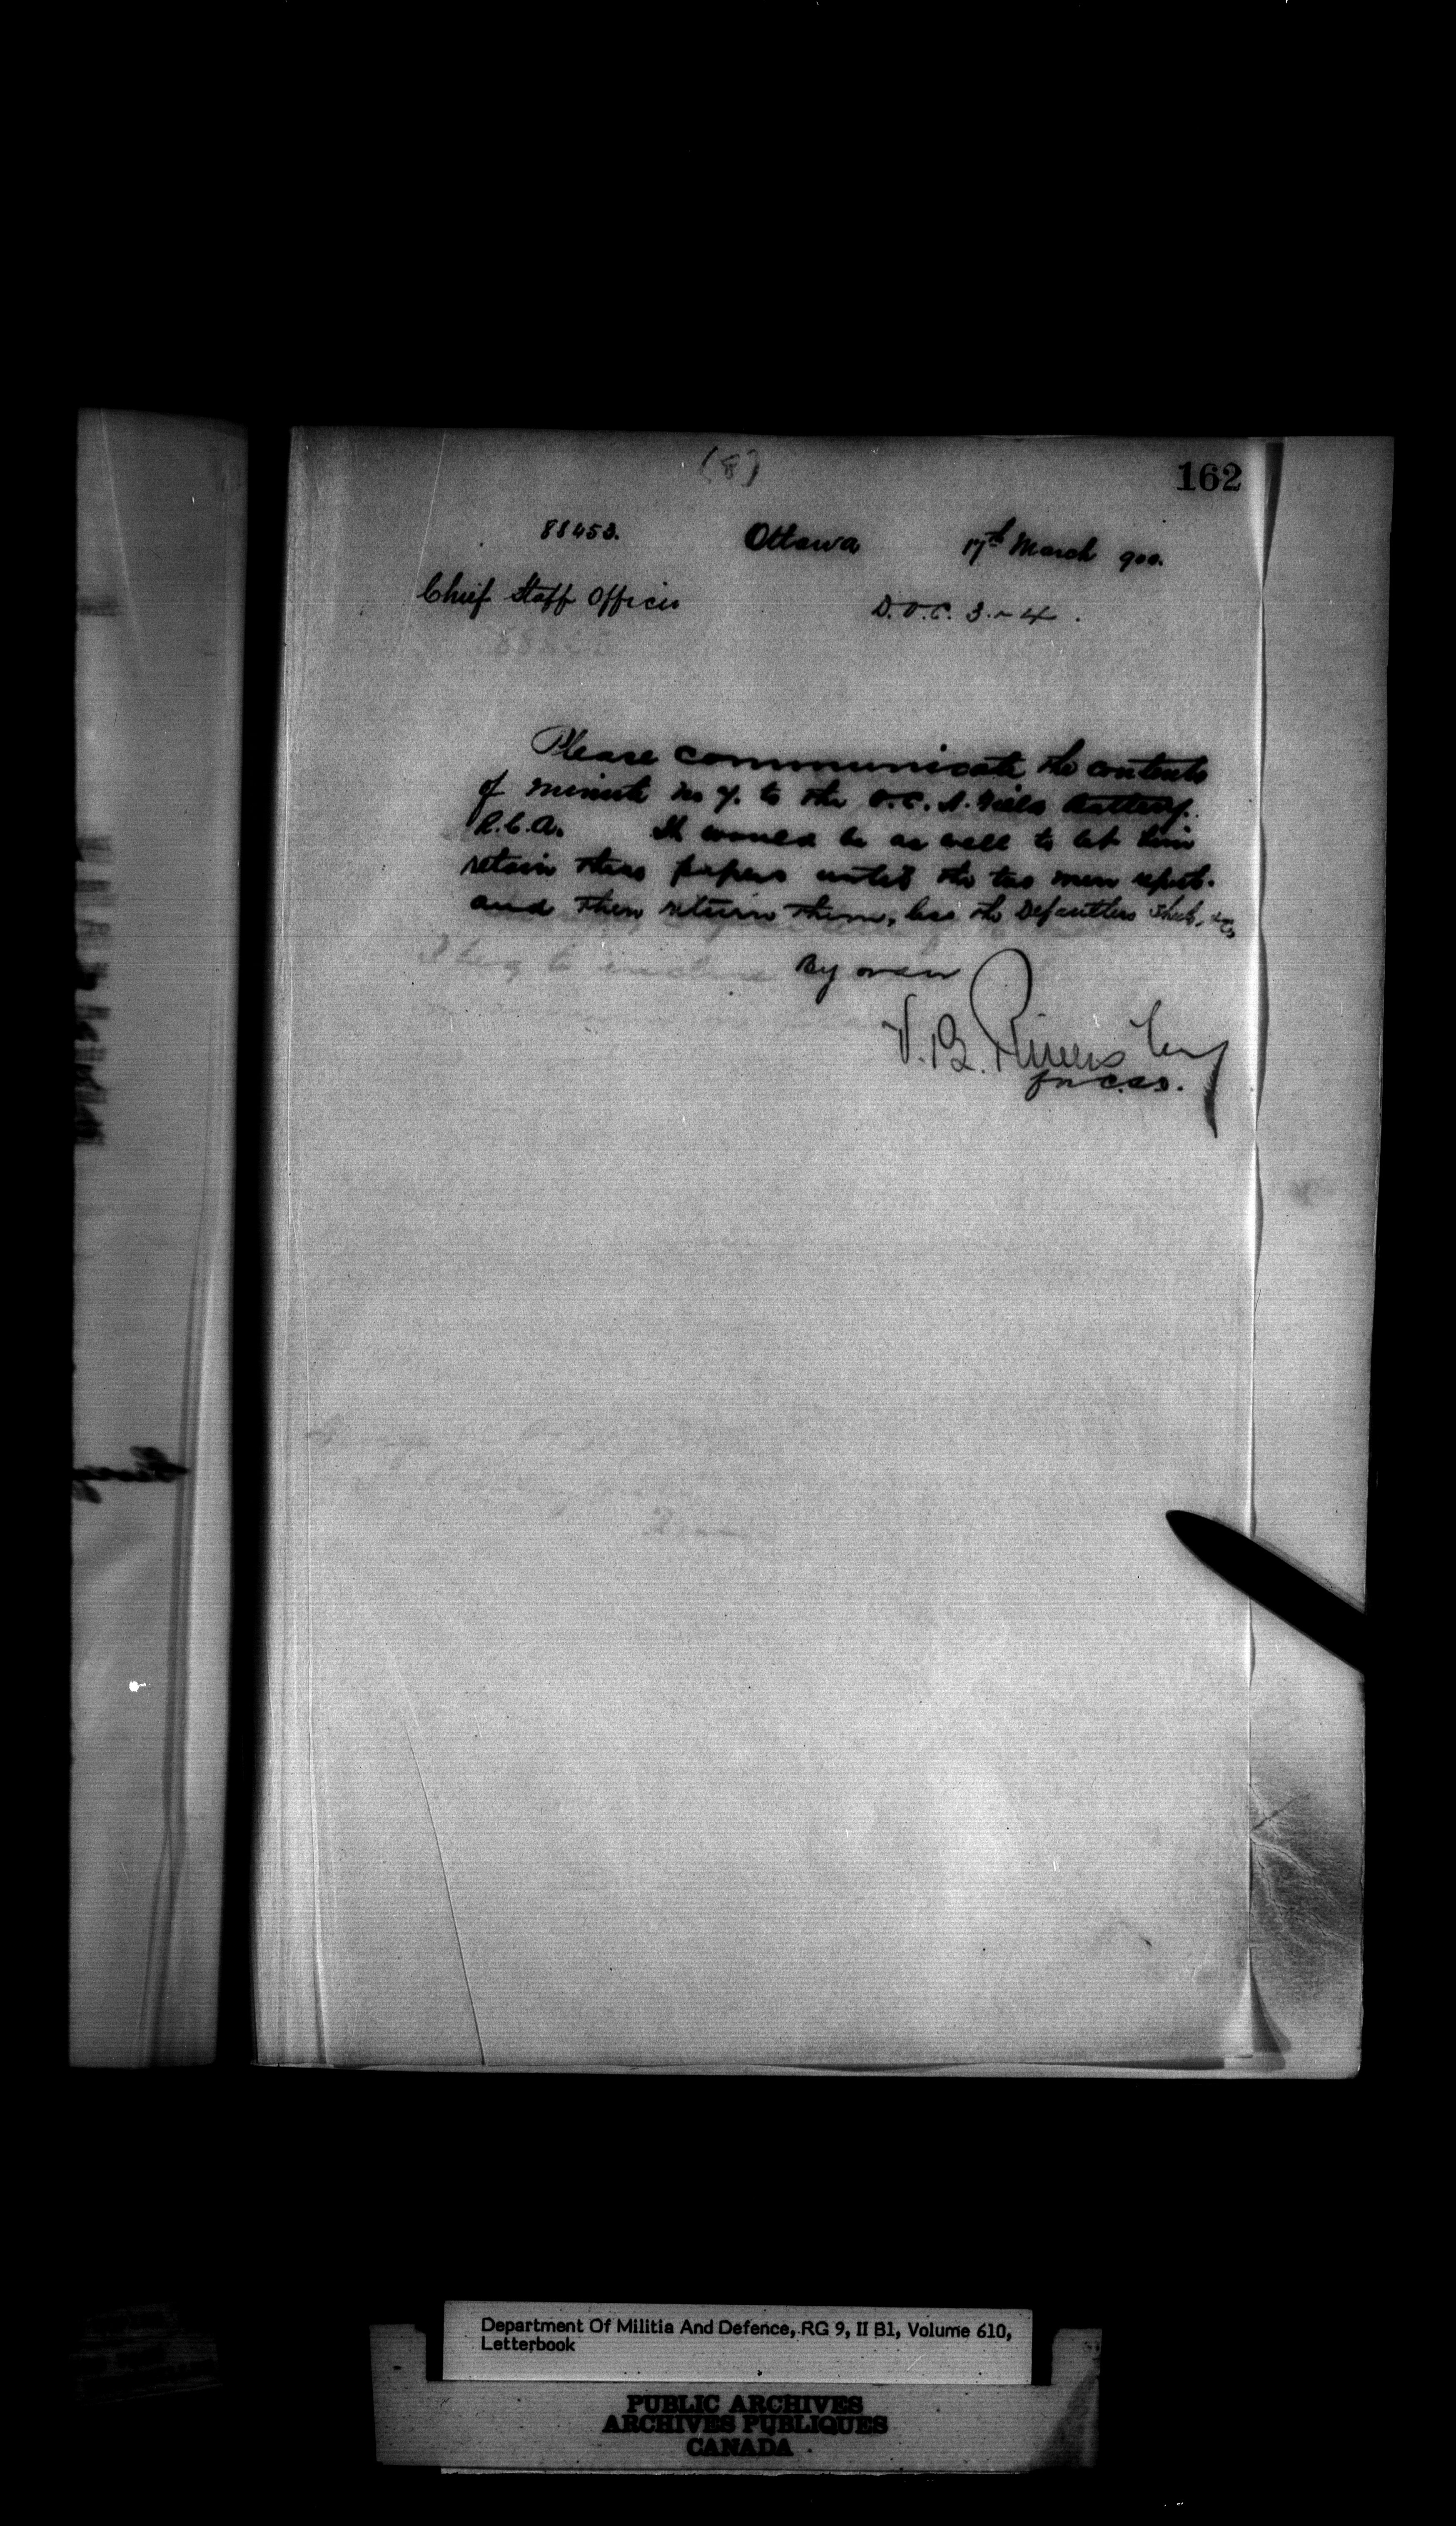 (8)
162
88453. Ottawa 17th March 900.
Chief Staff Officer D.O.C. 3. & 4.
Please communicate the contents
of minute No 7. to the O.C. A. Field Battery.
R.C.A. It would be as well to let him
retain these papers until the two men report.
and then return them, less the Defaulters Sheets, &c,
I beg to enclose
By order
V.B. Rivers
for C.S.O.
Department Of Militia And Defence, RG 9, II B1, Volume 610,
Letterbook
PUBLIC ARCHIVES
ARCHIVES PUBLIQUES
CANADA